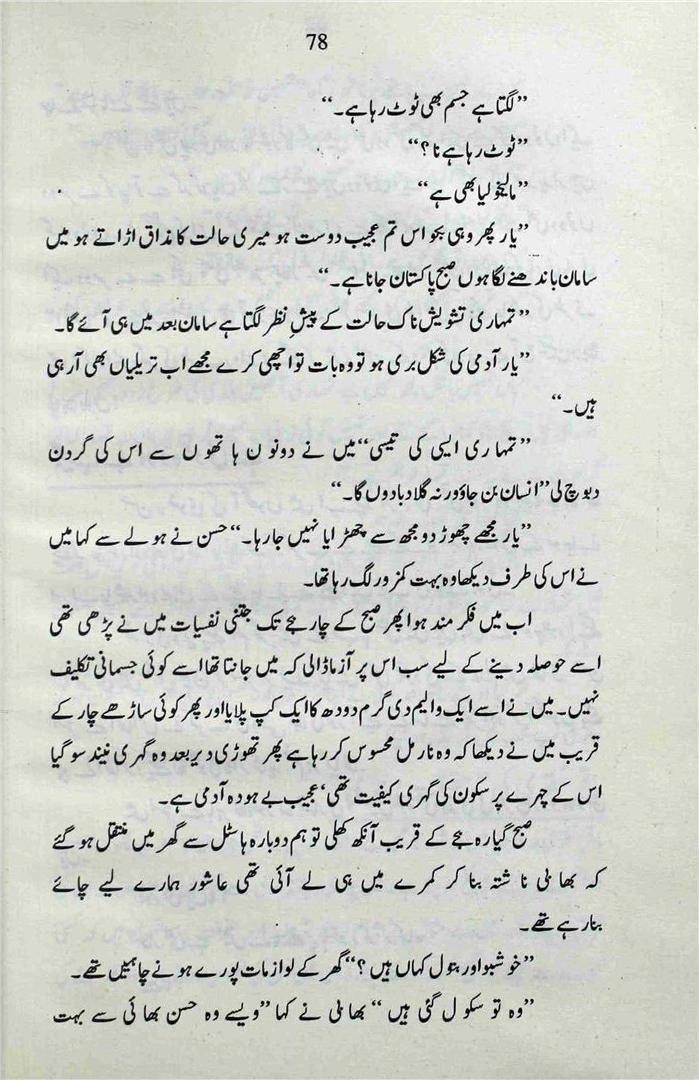 78
”لگتا ہے جسم بھی ٹوٹ رہا ہے۔“
”ٹوٹ رہا ہے نا؟“
”مالیخولیا بھی ہے“
”یار پھر وہی بجواس تم عجیب دوست ہو میری حالت کا مذاق اڑاتے ہو میں
سامان باندھنے لگا ہوں صبح پاکستان جانا ہے۔“
”تمہاری تشویش ناک حالت کے پیشِ نظر لگتا ہے سامان بعد میں ہی آئے گا۔
”یار آدمی کی شکل بری ہو تو وہ بات تو اچھی کرے مجھے اب تریلیاں بھی آرہی
ہیں۔“
”تمہاری ایسی کی تیسی“ میں نے دونوں ہاتھوں سے اس کی گردن
دبوچ لی ”انسان بن جاؤ ورنہ گلا دبادوں گا۔“
”یار مجھے چھوڑ دو مجھ سے چھڑایا نہیں جارہا۔“ حسن نے ہولے سے کہا میں
نے اس کی طرف دیکھا وہ بہت کمزور لگ رہا تھا۔
اب میں فکر مند ہوا پھر صبح کے چار بجے تک جتنی نفسیات میں نے پڑھی تھی
اسے حوصلہ دینے کے لیے سب اس پر آزما ڈالی کہ میں جانتا تھا اسے کوئی جسمانی تکلیف
نہیں۔ میں نے اسے ایک والیم دی گرم دودھ کا ایک کپ پلایا اور پھر کوئی ساڑھے چار کے
قریب میں نے دیکھا کہ وہ نارمل محسوس کر رہا ہے پھر تھوڑی دیر بعد وہ گہری نیند سو گیا
اس کے چہرے پر سکون کی گہری کیفیت تھی‘ عجیب بے ہودہ آدمی ہے۔
صبح گیارہ بجے کے قریب آنکھ کھلی تو ہم دوبارہ ہاسٹل سے گھر میں منتقل ہو گئے
کہ بھابی ناشتہ بنا کر کمرے میں ہی لے آئی تھی عاشور ہمارے لیے چائے
بنارہے تھے۔
”خوشبو اور بتول کہاں ہیں؟“ گھر کے لوازمات پورے ہونے چاہئیں تھے۔
”وہ تو سکول گئی ہیں“ بھابی نے کہا ”ویسے وہ حسن بھائی سے بہت